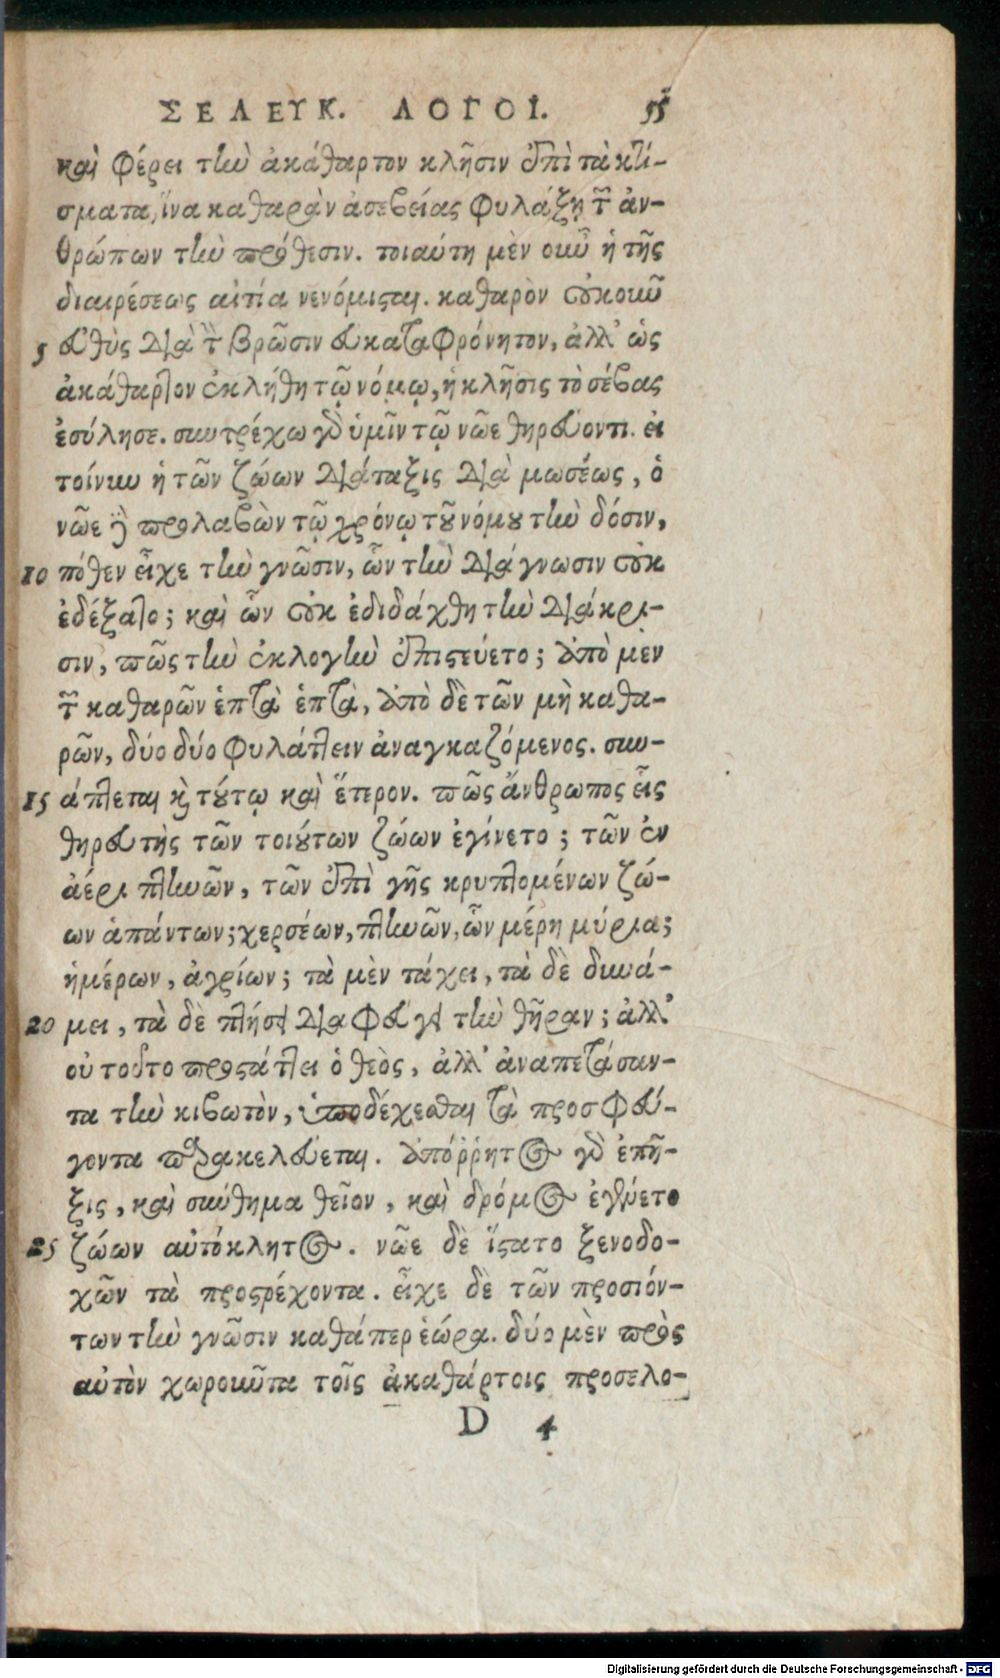 ΣΕΛΕΥΚ. ΛΟΓΟΙ. 55
καὶ φέρει τὴν ἀκάθαρτον κλῆσιν ἐπὶ τὰ κτί-
σματα, ἵνα καθαρὰν ἀσεβείας φυλάξῃ τῶν ἀν-
θρώπων τὴν πρόθεσιν. τοιαύτη μὲν οὖν ἡ τῆς
διαιρέσεως αἰτία νενόμισται. καθαρὸν οὐκοῦν
5 εὐθὺς διὰ τὴν βρῶσιν εὐκαταφρόνητον, ἀλλ' ὡς
ἀκάθαρτον ἐκλήθη τῷ νόμῳ, ἡ κλῆσις τὸ σέβας
ἐσύλησε. συντρέχω γὰρ ὑμῖν τῷ νῶε θηρεύοντι. εἰ
τοίνυν ἡ τῶν ζώων διάταξις διὰ μωσέως, ὁ
νῶε δὲ προλαβὼν τῷ χρόνῳ τοῦ νόμου τὴν δόσιν,
10 πόθεν εἶχε τὴν γνῶσιν, ὧν τὴν διάγνωσιν οὐκ
ἐδέξατο; καὶ ὧν οὐκ ἐδιδάχθη τὴν διάκρι-
σιν, πῶς τὴν ἐκλογὴν ἐπιστεύετο; ἀπὸ μὲν
τῶν καθαρῶν ἑπτὰ ἑπτὰ, ἀπὸ δὲ τῶν μὴ καθα-
ρῶν, δύο δύο φυλάττειν ἀναγκαζόμενος. συν-
15 άπτεται καὶ τούτῳ καὶ ἕτερον. πῶς ἄνθρωπος εἷς
θηρευτὴς τῶν τοιούτων ζώων ἐγίνετο; τῶν ἐν
ἀέρι πτηνῶν, τῶν ἐπὶ γῆς κρυπτομένων ζώ-
ων ἁπάντων; χερσέων, πτηνῶν, ὧν μέρη μύρια;
ἡμέρων, ἀγρίων; τὰ μὲν τάχει, τὰ δὲ δυνά-
20 μει, τὰ δὲ πτήσει διαφεύγει τὴν θῆραν; ἀλλ'
οὐ τοῦτο προστάττει ὁ θεὸς, ἀλλ' ἀναπετάσαν-
τα τὴν κιβωτὸν, ὑποδέχεσθαι τὰ προσφεύ-
γοντα παρακελεύεται. ἀπόῤῥητος γὰρ ἐπῆ-
ξις, καὶ σύνθημα θεῖον, καὶ δρόμος ἐγένετο
25 ζώων αὐτόκλητος. νῶε δὲ ἵστατο ξενοδο-
χῶν τὰ προστρέχοντα. εἶχε δὲ τῶν προσιόν-
των τὴν γνῶσιν καθάπερ ἑώρα. δύο μὲν πρὸς
αὐτὸν χωροῦντα τοῖς ἀκαθάρτοις προσελο-
D 4
Digitalisierung gefördert durch die Deutsche Forschungsgemeinschaft - DFG